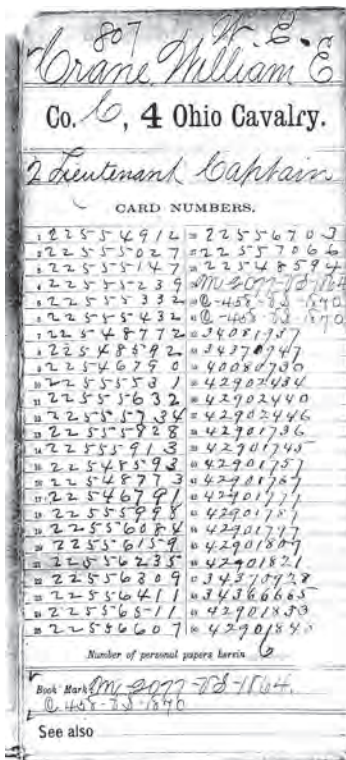 807 W. E.
Crane, William E
Co. C, 4 Ohio Cavalry.
2 Lieutenant Captain
CARD NUMBERS.
1 22554912 26 22556703
2 22555027 27 22557066
3 22555147 28 22548594
4 22555239 29 M-2077-VS-1864
5 22555332 30 C-458-VS-1870
6 22555432 31 C-458-VS-1870
7 22548772 32 34081937
8 22548592 33 34370747
9 22546790 34 40080730
10 22555531 35 42902434
11 22555632 36 42902440
12 22555734 37 42902446
13 22555828 38 42901736
14 22555913 39 42901745
15 22548593 40 42901757
16 22548773 41 42901767
17 22546791 42 42901771
18 22555998 43 42901781
19 22556084 44 42901797
20 22556159 45 42901809
21 22556235 46 42901821
22 22556309 47 34370928
23 22556411 48 34366665
24 22556511 49 42901833
25 22556607 50 42901840
Number of personal papers herein 6
Book Mark: M-2077-VS-1864.
C. 458-VS-1870
See also